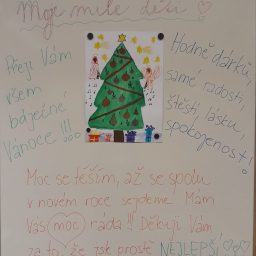 Moje milé děti ♡
Přeji Vám
všem
báječné
Vánoce!!!
Hodně dárků,
samé radosti,
štěstí, lásku,
spokojenost!
Moc se těším, až se spolu
v novém roce sejdeme. Mám
Vás moc ráda!!! Děkuji Vám
za to, že jste prostě NEJLEPŠÍ ♡♡